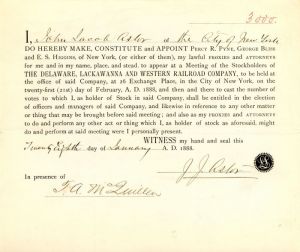 3000.
I, John Jacob Astor in the City of New York
DO HEREBY MAKE, CONSTITUTE and APPOINT PERCY R. PYNE, GEORGE BLISS
and E. S. HIGGINS, of New York, (or either of them), my lawful PROXIES and ATTORNEYS
for me and in my name, place, and stead, to appear at a Meeting of the Stockholders of
THE DELAWARE, LACKAWANNA AND WESTERN RAILROAD COMPANY, to be held
at the office of said Company, at 26 Exchange Place, in the City of New York, on the
twenty-first (21st) day of February, A. D. 1888, and then and there to cast the number
of votes to which I, as holder of Stock in said Company, shall be entitled in the election
of officers and managers of said Company, and likewise in reference to any other matter
or thing that may be brought before said meeting; and also as my PROXIES and ATTORNEYS
to do and perform any other act or thing which I, as holder of stock as aforesaid, might
do and perform at said meeting were I personally present.
WITNESS my hand and seal this
Twenty Eighth day of January A. D. 1888.
J. J. Astor
In presence of